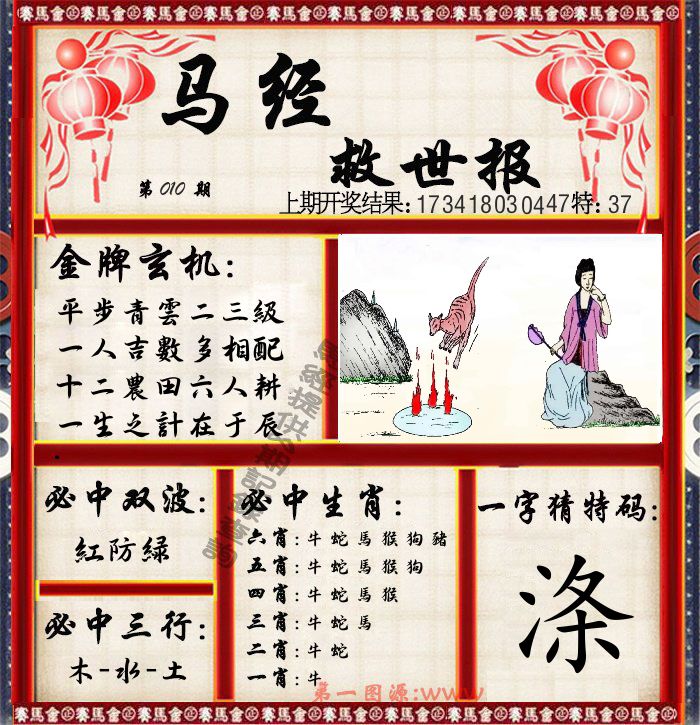 马经
救世报
第 010 期
上期开奖结果:173418030447特:37
金牌玄机:
平步青雲二三級
一人吉數多相配
十二農田六人耕
一生之計在于辰
必中双波:
紅防緑
必中三行:
木-水-土
必中生肖:
六肖:牛蛇馬猴狗豬
五肖:牛蛇馬猴狗
四肖:牛蛇馬猴
三肖:牛蛇馬
二肖:牛蛇
一肖:牛
一字猜特码:
涤
第一图源:www